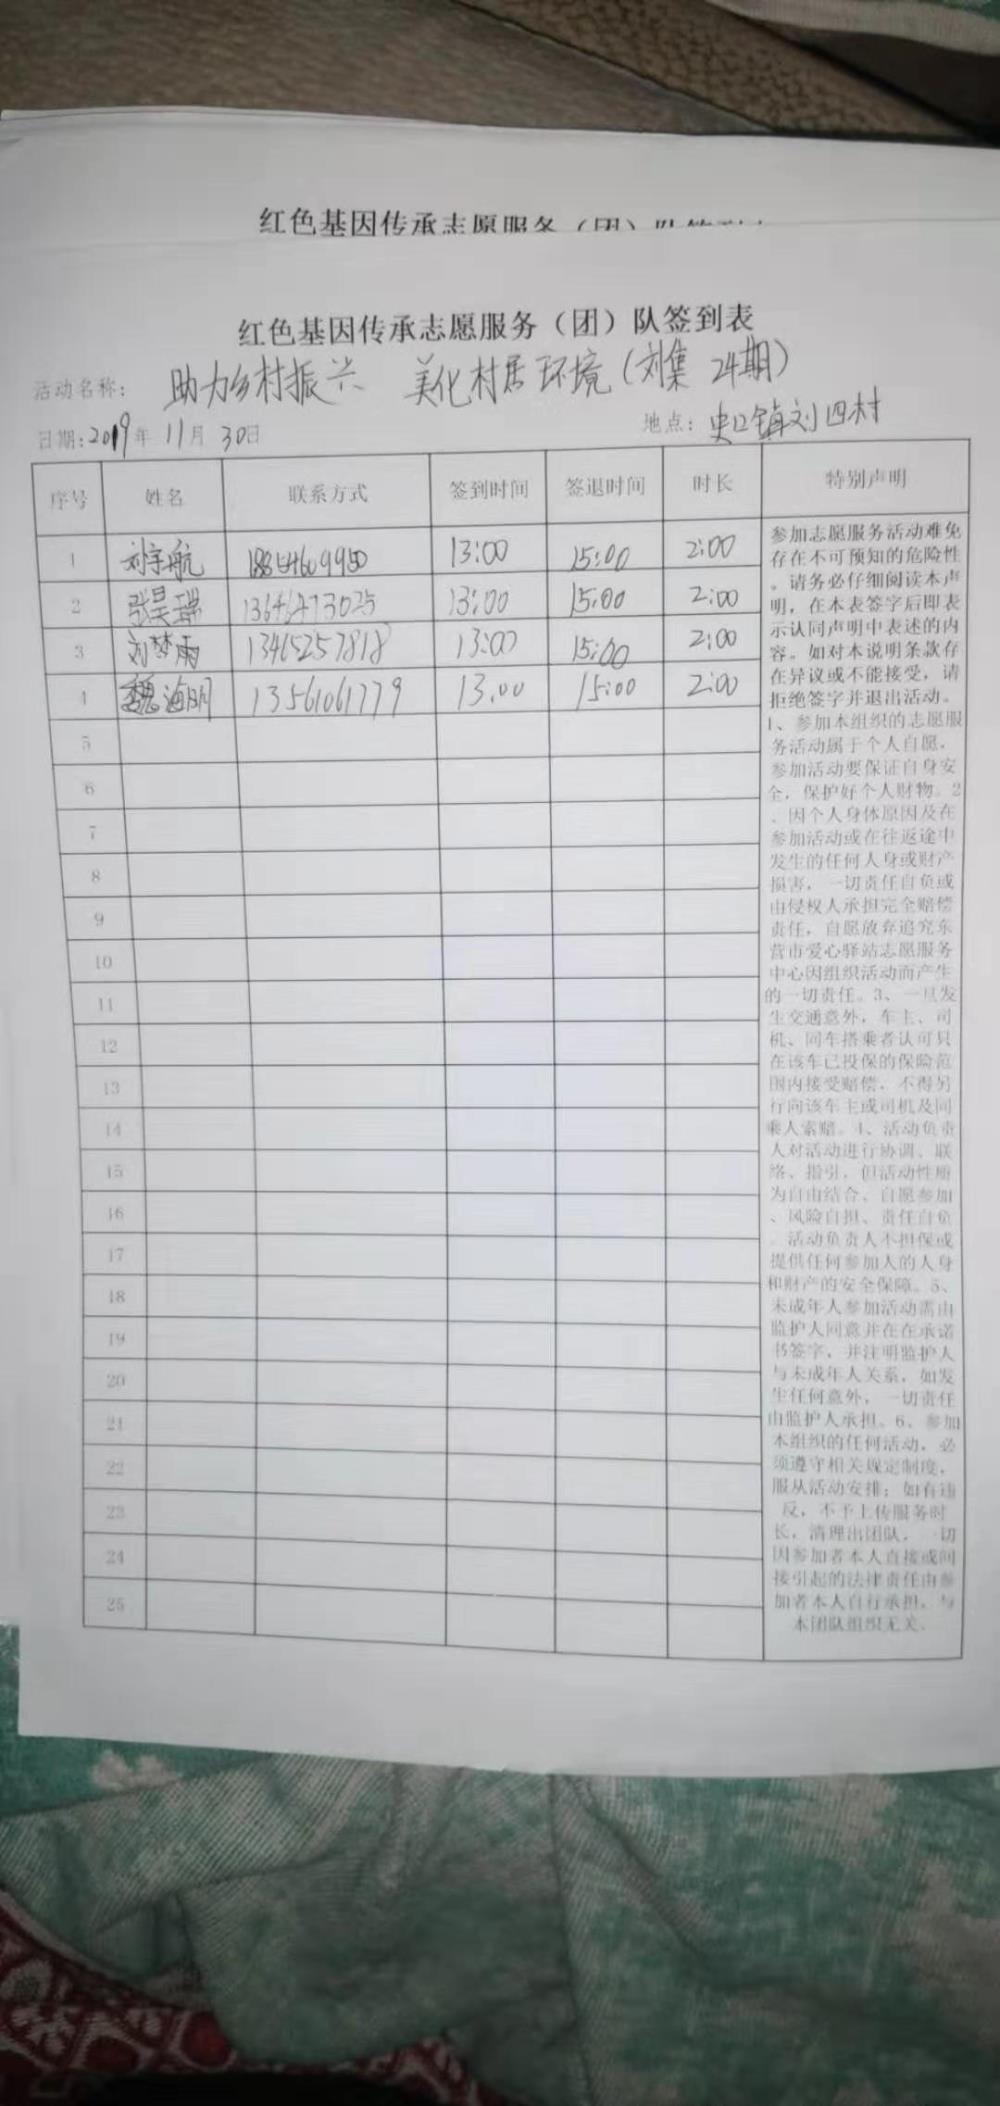 红色基因传承志愿服务（团）队签到表
红色基因传承志愿服务（团）队签到表
活动名称： 助力乡村振兴 美化村居环境（刘集 24期）
日期：2019年 11月 30日 地点：史口镇刘四村
序号 姓名 联系方式 签到时间 签退时间 时长 特别声明
1 刘宇航 18854609950 13:00 15:00 2:00
2 张昊瑞 13646473025 13:00 15:00 2:00
3 刘梦雨 13465257818 13:00 15:00 2:00
4 魏海明 13561061779 13:00 15:00 2:00
5
6
7
8
9
10
11
12
13
14
15
16
17
18
19
20
21
22
23
24
25
参加志愿服务活动难免
存在不可预知的危险性
。请务必仔细阅读本声
明，在本表签字后即表
示认同声明中表述的内
容。如对本说明条款存
在异议或不能接受，请
拒绝签字并退出活动。
1、参加本组织的志愿服
务活动属于个人自愿，
参加活动要保证自身安
全，保护好个人财物。2
、因个人身体原因及在
参加活动或在往返途中
发生的任何人身或财产
损害，一切责任自负或
由侵权人承担完全赔偿
责任，自愿放弃追究东
营市爱心驿站志愿服务
中心因组织活动而产生
的一切责任。3、一旦发
生交通意外，车主、司
机、同车搭乘者认可只
在该车已投保的保险范
围内接受赔偿，不得另
行向该车主或司机及同
乘人索赔。4、活动负责
人对活动进行协调、联
络、指引，但活动性质
为自由结合、自愿参加
、风险自担、责任自负
。活动负责人不担保或
提供任何参加人的人身
和财产的安全保障。5、
未成年人参加活动需由
监护人同意并在在承诺
书签字，并注明监护人
与未成年人关系，如发
生任何意外，一切责任
由监护人承担。6、参加
本组织的任何活动，必
须遵守相关规定制度，
服从活动安排；如有违
反，不予上传服务时
长，清理出团队，一切
因参加者本人直接或间
接引起的法律责任由参
加者本人自行承担，与
本团队组织无关.